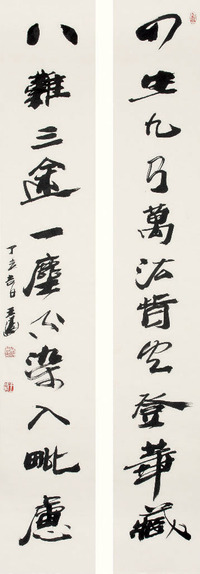 四生九有萬法皆空登華藏
八難三途一塵不染入毗盧
丁亥春日